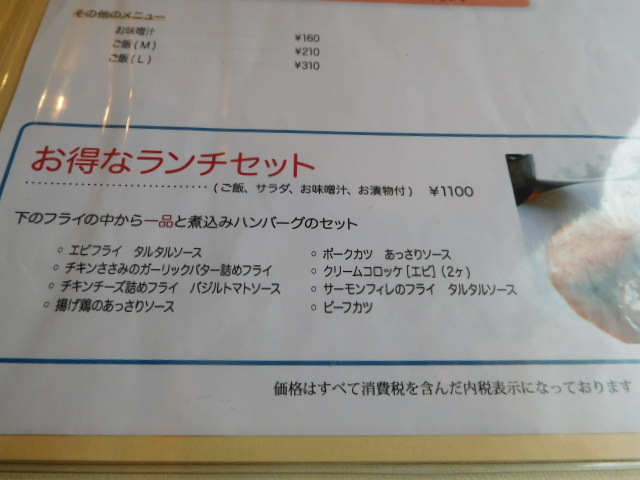 その他のメニュー
お味噌汁 ¥160
ご飯(M) ¥210
ご飯(L) ¥310
お得なランチセット
(ご飯、サラダ、お味噌汁、お漬物付) ¥1100
下のフライの中から一品と煮込みハンバーグのセット
○ エビフライ タルタルソース
○ チキンささみのガーリックバター詰めフライ
○ チキンチーズ詰めフライ バジルトマトソース
○ 揚げ鶏のあっさりソース
○ ポークカツ あっさりソース
○ クリームコロッケ[エビ](2ヶ)
○ サーモンフィレのフライ タルタルソース
○ ビーフカツ
価格はすべて消費税を含んだ内税表示になっております